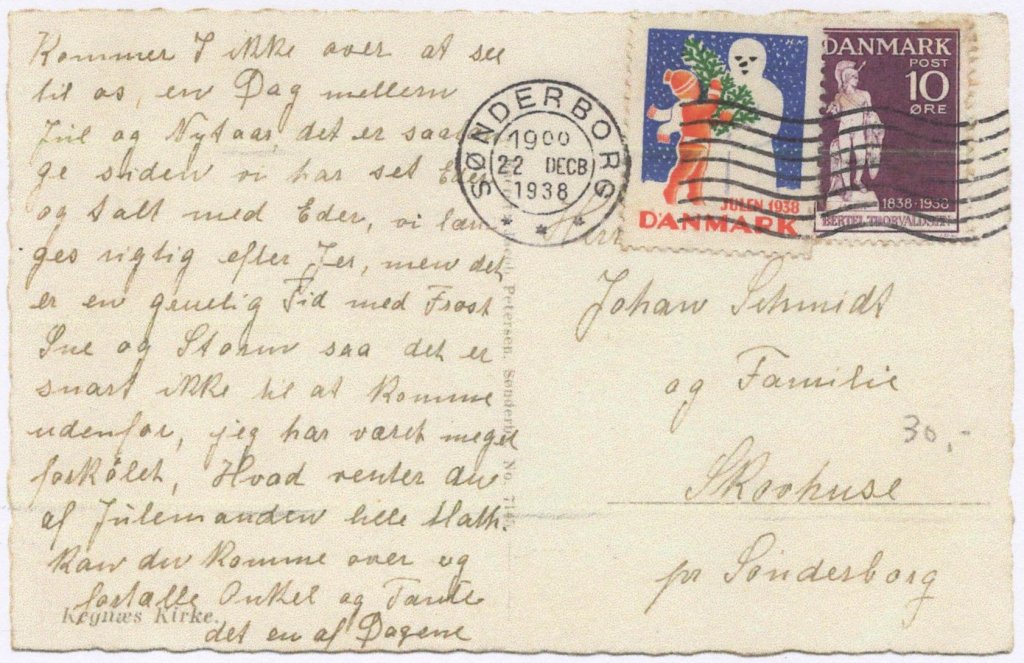 Kommer I ikke over at see
til os, en Dag mellem
Jul og Nytaar, det er saa
ge siden vi har set Eder
og talt med Eder, vi læn
ges rigtig efter Jer, men det
er en genelig Tid med Frost
Sne og Storm saa det er
snart ikke til at komme
udenfor, jeg har været meget
forkølet, Hvad venter du
af Julemanden lille Math.
Kan du komme over og
fortalle Onkel og Tante
det en af Dagene
Kegnæs Kirke.
Petersen, Sønderb No. 71
SØNDERBORG
1900
22 DECB
1938
JULEN 1938
DANMARK
DANMARK
POST
10
ØRE
1838-1938
BERTEL THORVALDSEN
Herr
Johan Schmidt
og Familie
30,-
Skovhuse
pr Sønderborg